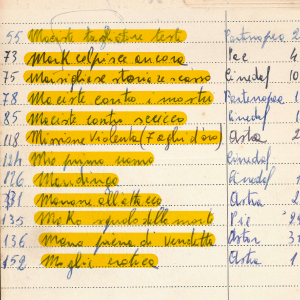 55 Maciste tagliatore teste Partenopea 2
73 Mark colpisce ancora Pac 4
75 Marsigliese storia e scasso Cinedaf 10
78 Maciste contro i mostri Partenopea 1
85 Maciste contro sceicco Cinedaf 1
118 Missione violenta (7 aghi d'oro) Asta 2
124 Mio primo uomo Cinedaf
126 Mandingo Cinedaf 1
131 Manone all'attacco Astra 2
135 Mako squalo della morte Pac
136 Mano piena di vendetta Astor 3
152 Moglie erotica Astra 1